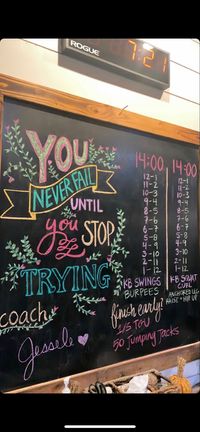 ROGUE
7:21
YOU
NEVER FAIL
UNTIL
you
STOP
TRYING
coach
14:00
12-1
11-2
10-3
9-4
8-5
7-6
6-7
5-8
4-9
3-10
2-11
1-12
KB SWINGS
BURPEES
14:00
12-1
11-2
10-3
9-4
8-5
7-6
6-7
5-8
4-9
3-10
2-11
1-12
KB SQUAT
CURL
ANCHORED LEG
finish early?
50 Jumping Jacks